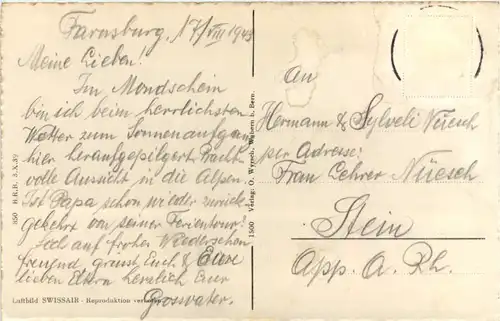 Farnsburg, 17/VIII 1943
Meine Lieben!
Im Mondschein
bin ich beim herrlichsten
Wetter zum Sonnenaufgang
hier heraufgepilgert. Pracht
volle Aussicht in die Alpen.
Ist Papa schon wieder zurück
gekehrt von seiner Ferientour?
Sich auf frohes Wiedersehen
freuend grüsst Euch & Eure
lieben Eltern herzlich Euer
Grossvater.
An
Hermann & Sylveli Nüesch
per Adresse:
Frau Lehrer Nüesch
Stein
App. A. Rh.
Luftbild SWISSAIR - Reproduktion
950 B.R.B. 3.X.39
1500 Verlag: O. Wyrsch, Wabern b. Bern.